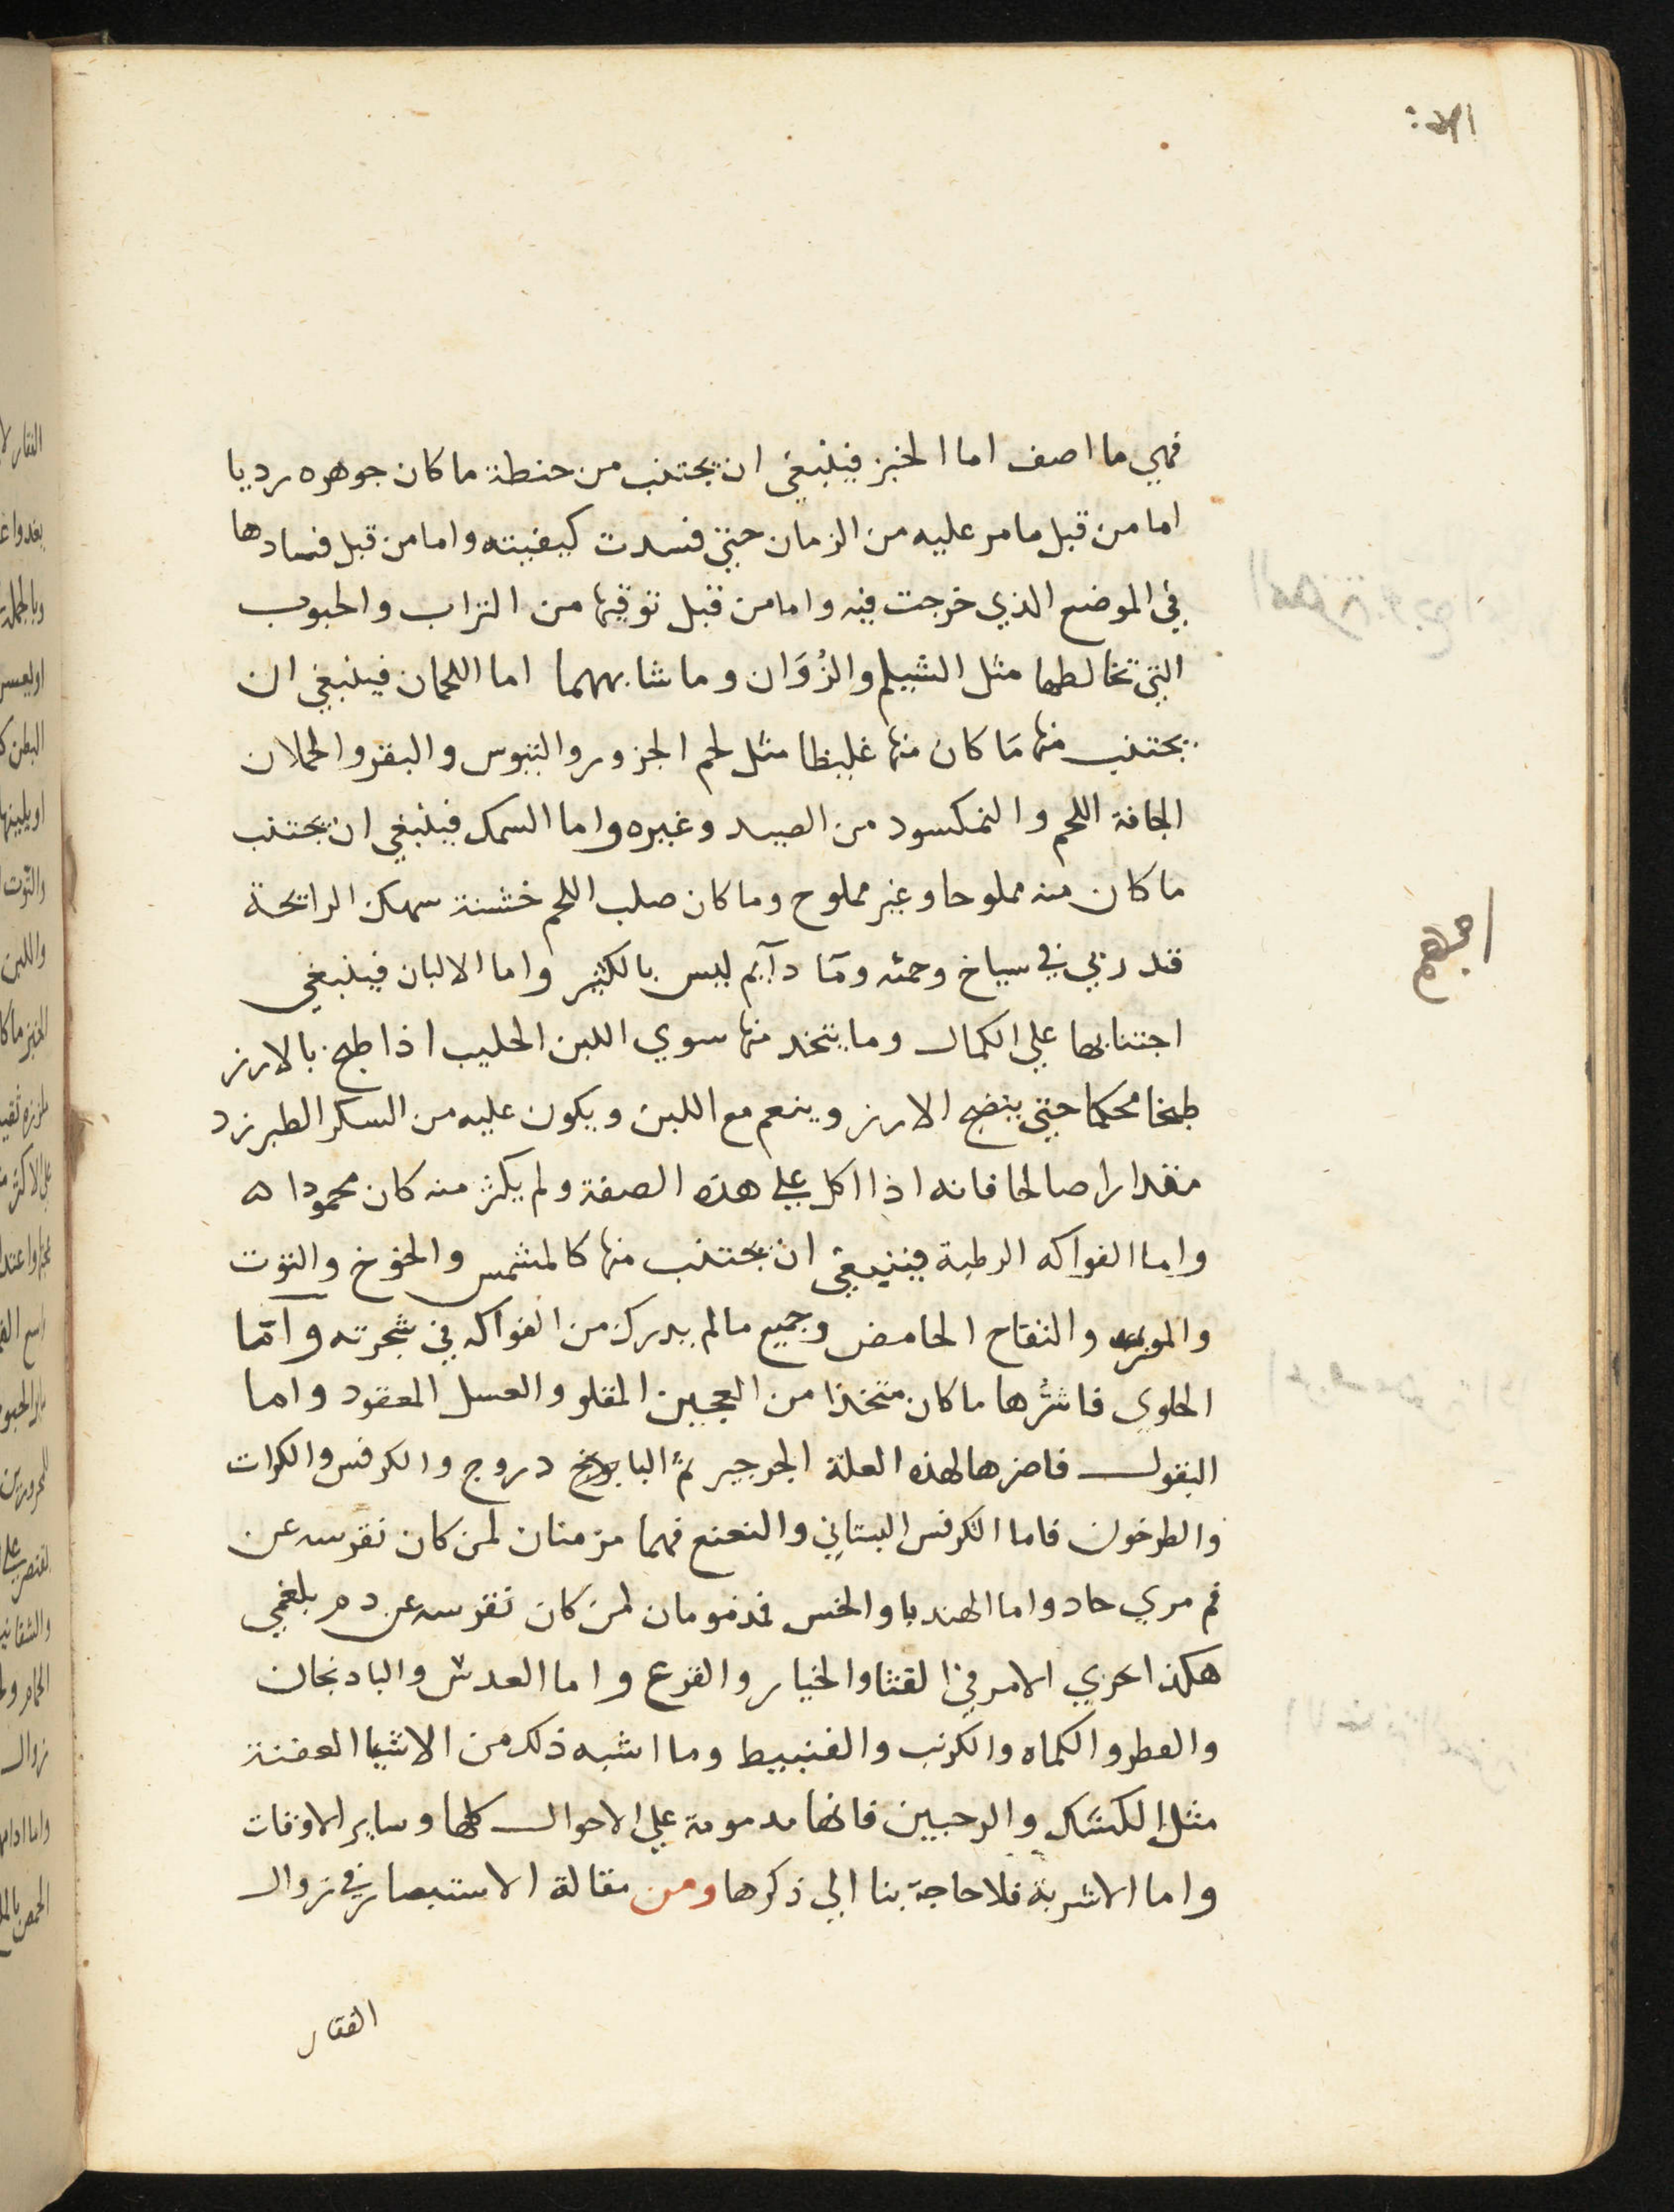 فهي ما اصف اما الخبز فينبغي ان يجتنب من حنطة ما كان جوهره رديا
اما من قبل ما مر عليه من الزمان حتي فسدت كيفيته واما من قبل فسادها
في الموضع الذي خرجت فيه واما من قبل توقيها من التراب والحبوب
التي تخالطها مثل الشيلم والزُوَان وما شابههما اما اللحمان فينبغي ان
يجتنب منها مَا كان منها غليظا مثل لحم الجزور والتيوس والبقر والحملان
الجافة اللحم والنمكسود من الصيد وغيره واما السمك فينبغي ان يجتنب
ما كان منه مملوحا وغير مملوح وما كان صلب اللحم خشنة سهك الرائحة
قد ربي في سباخ وحمئه ومَا دآيم ليس بالكثير واما الالبان فينبغي
اجتنابها علي الكمال وما يتخد منها سوي اللبن الحليب اذا طبخ بالارز
طبخا محكما حتي ينضج الارز وينعم مع اللبن ويكون عليه من السكر الطبرزد
مقدارا صالحا فانه اذا اكل علي هذه الصفة ولم يكثر منه كان محمودا ه
واما الفواكه الرطبة فينبغي ان يجتنب منها كالمشمس والخوخ والتوت
والموز والتفاح الحامض وجميع ما لم يدرك من الفواكه في شجرته وامّا
الحلوي فاشرُها ما كان متخذا من العجين المقلو والعسل المعقود واما
البقول فاضرها لهذه العلة الجرجير ثمً دروج والكرفس والكراث
والطرخون فاما الكرفس البستاني والنعنع فهما مزمنان لمن كان نقرسه عن
دم مري حاد واما الهندبا والخس فمذمومان لمن كان نقرسه عن دم بلغمي
هكذا يجري الامر في القثا والخيار والقرع واما العدس والبادنجان
والفطر والكماه والكرنب والقنبيط وما اشبه ذلك من الاشيا العفنة
مثل الكشك والرحبين فانها مدمومة علي الاحوال كلها وساير الاوقات
واما الاشربة فلا حاجة بنا الي ذكرها ومن مقالة الاستبصار في زوال
الفقار